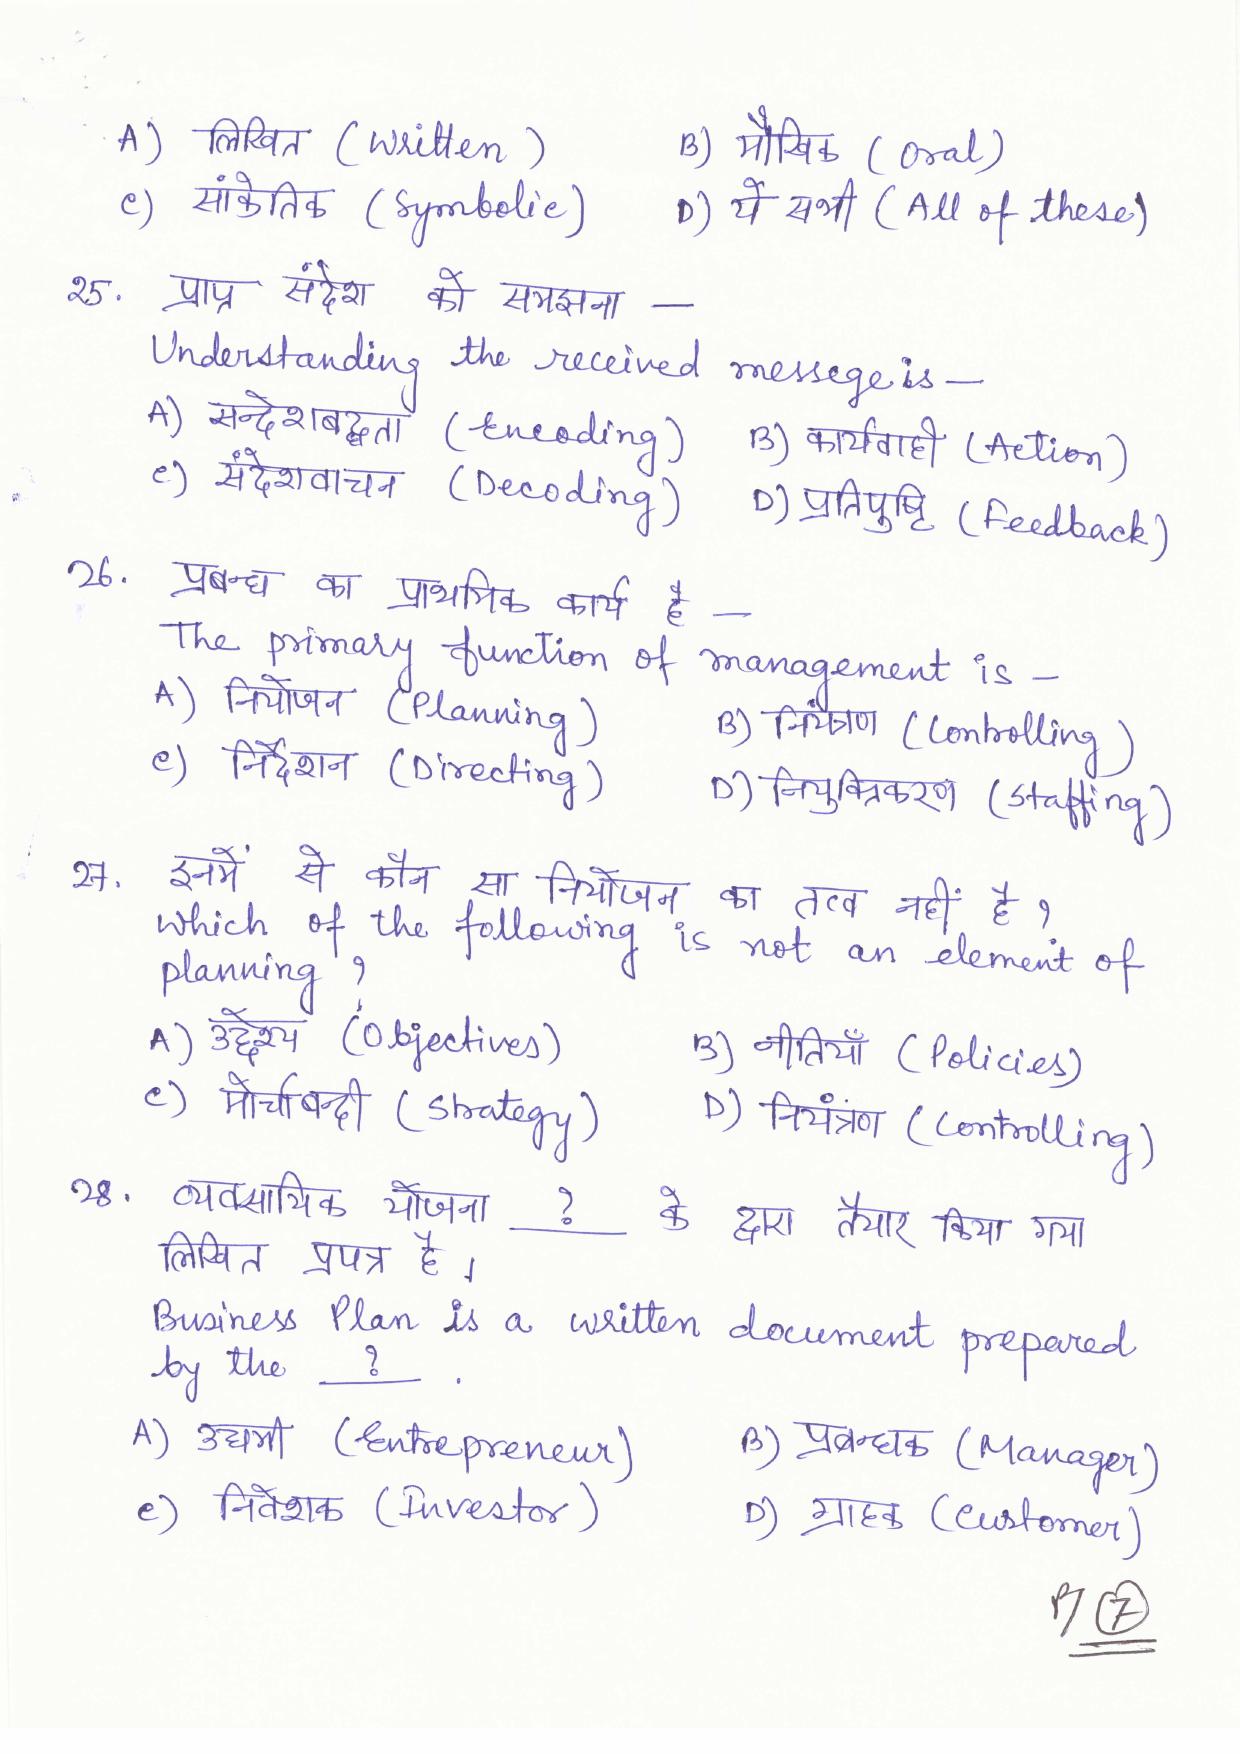 A) लिखित (Written) B) मौखिक (Oral)
C) सांकेतिक (Symbolic) D) ये सभी (All of these)
25. प्राप्त संदेश को समझना —
Understanding the received messege is —
A) सन्देशबद्धता (Encoding) B) कार्यवाही (Action)
C) संदेशवाचन (Decoding) D) प्रतिपुष्टि (Feedback)
26. प्रबन्ध का प्राथमिक कार्य है —
The primary function of management is —
A) नियोजन (Planning) B) नियंत्रण (Controlling)
C) निर्देशन (Directing) D) नियुक्तिकरण (Staffing)
27. इनमें से कौन सा नियोजन का तत्व नहीं है ?
Which of the following is not an element of
planning ?
A) उद्देश्य (Objectives) B) नीतियाँ (Policies)
C) मोर्चाबन्दी (Strategy) D) नियंत्रण (Controlling)
28. व्यवसायिक योजना __?__ के द्वारा तैयार किया गया
लिखित प्रपत्र है ।
Business Plan is a written document prepared
by the __?__ .
A) उद्यमी (Entrepreneur) B) प्रबन्धक (Manager)
C) निवेशक (Investor) D) ग्राहक (Customer)
P/ 7